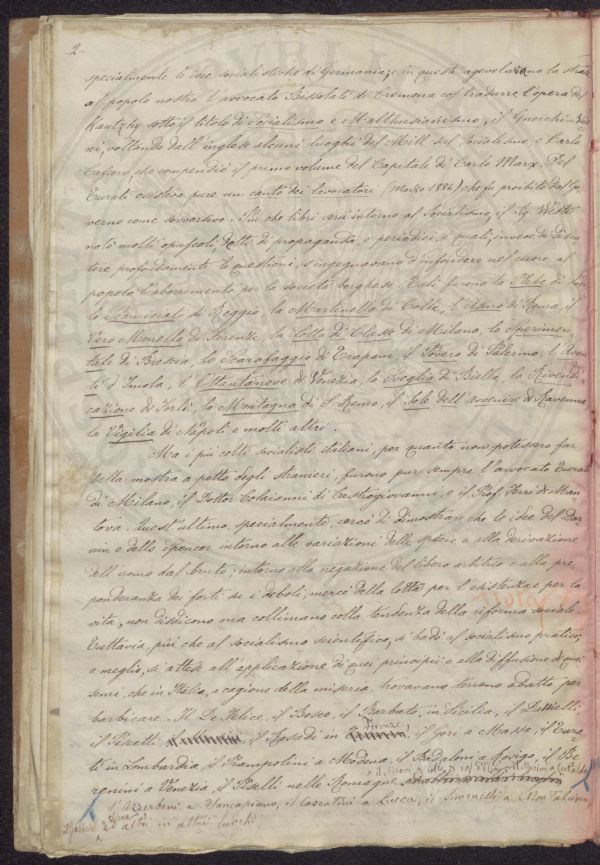 2
specialmente le idee socialistiche di Germania; e in questi agevolarono la strada
al popolo nostro l'avvocato Bissolati di Cremona col tradurre l'opera del
Kautzky sotto il titolo di Socialismo e Malthusianismo, il Gnocchi-Via-
ni, voltando dell'inglese alcuni luoghi del Mill sul Socialismo, e Carlo
Cafiero che compendiò il primo volume del Capitale di Carlo Marx. Del
Turati esisteva pure un canto dei lavoratori (Marzo 1886) che fu proibito dal Go-
verno come sovversivo. Più che libri serii intorno al Socialismo, il Sig.
notò molti opuscoli, detti di propaganda, e periodici, i quali, invece di discu-
tere profondamente le questioni, s'ingegnavano d'infondere nel cuore al
popolo l'aborrimento per la società borghese. Tali furono la Plebe di
lo Scamiciato di Reggio, la Martinella di Colle, l'Asino di Roma, il
Vero Monello di Firenze, la Lotta di Classe di Milano, lo Sperimen-
tale di Brescia, lo Scarafaggio di Trapani, il Povero di Palermo, l'Avan-
ti d'Imola, l'Ottantanove di Venezia, la Sveglia di Biella, la Rivendi-
cazione di Forlì, la Montagna di S. Remo, il Sole dell'avvenire di Ravenna
la Vigilia di Napoli e molti altri.
Ma i più colti socialisti italiani, per quanto non potessero far
bella mostra a petto degli stranieri, furono pur sempre l'avvocato Turati
di Milano, il Dottor Colaianni di Castrogiovanni, e il Prof. Ferri di Man-
tova. Quest'ultimo, specialmente, cercò di dimostrare che le idee del Dar-
win e dello Spencer intorno alle variazioni delle specie e alla derivazione
dell'uomo dal bruto; intorno alla negazione del libero arbitrio e alla pre-
ponderanza dei forti su i deboli, mercè della lotta per l'esistenza e per la
vita, non disdicono ma collimano colla tendenza della riforma sociale.
Tuttavia, più che al socialismo scientifico, si badò al socialismo pratico;
o meglio, si attese all'applicazione di quei principii e alla diffusione di quei
semi, che in Italia, a cagione della miseria, trovavano terreno adatto per
barbicare. Il De Felice, il Bosco, il Barbato, in Sicilia, il
il Pescetti, il in Firenze, il Gori a Massa, il Tura-
ti in Lombardia, il Prampolini a Modena, il Badaloni a Rovigo, il Be-
renini a Venezia, il Piselli nelle Romagne,
l'Azzerboni a Sancasciano, il a Lucca, il Simonelli a
altri in altri luoghi